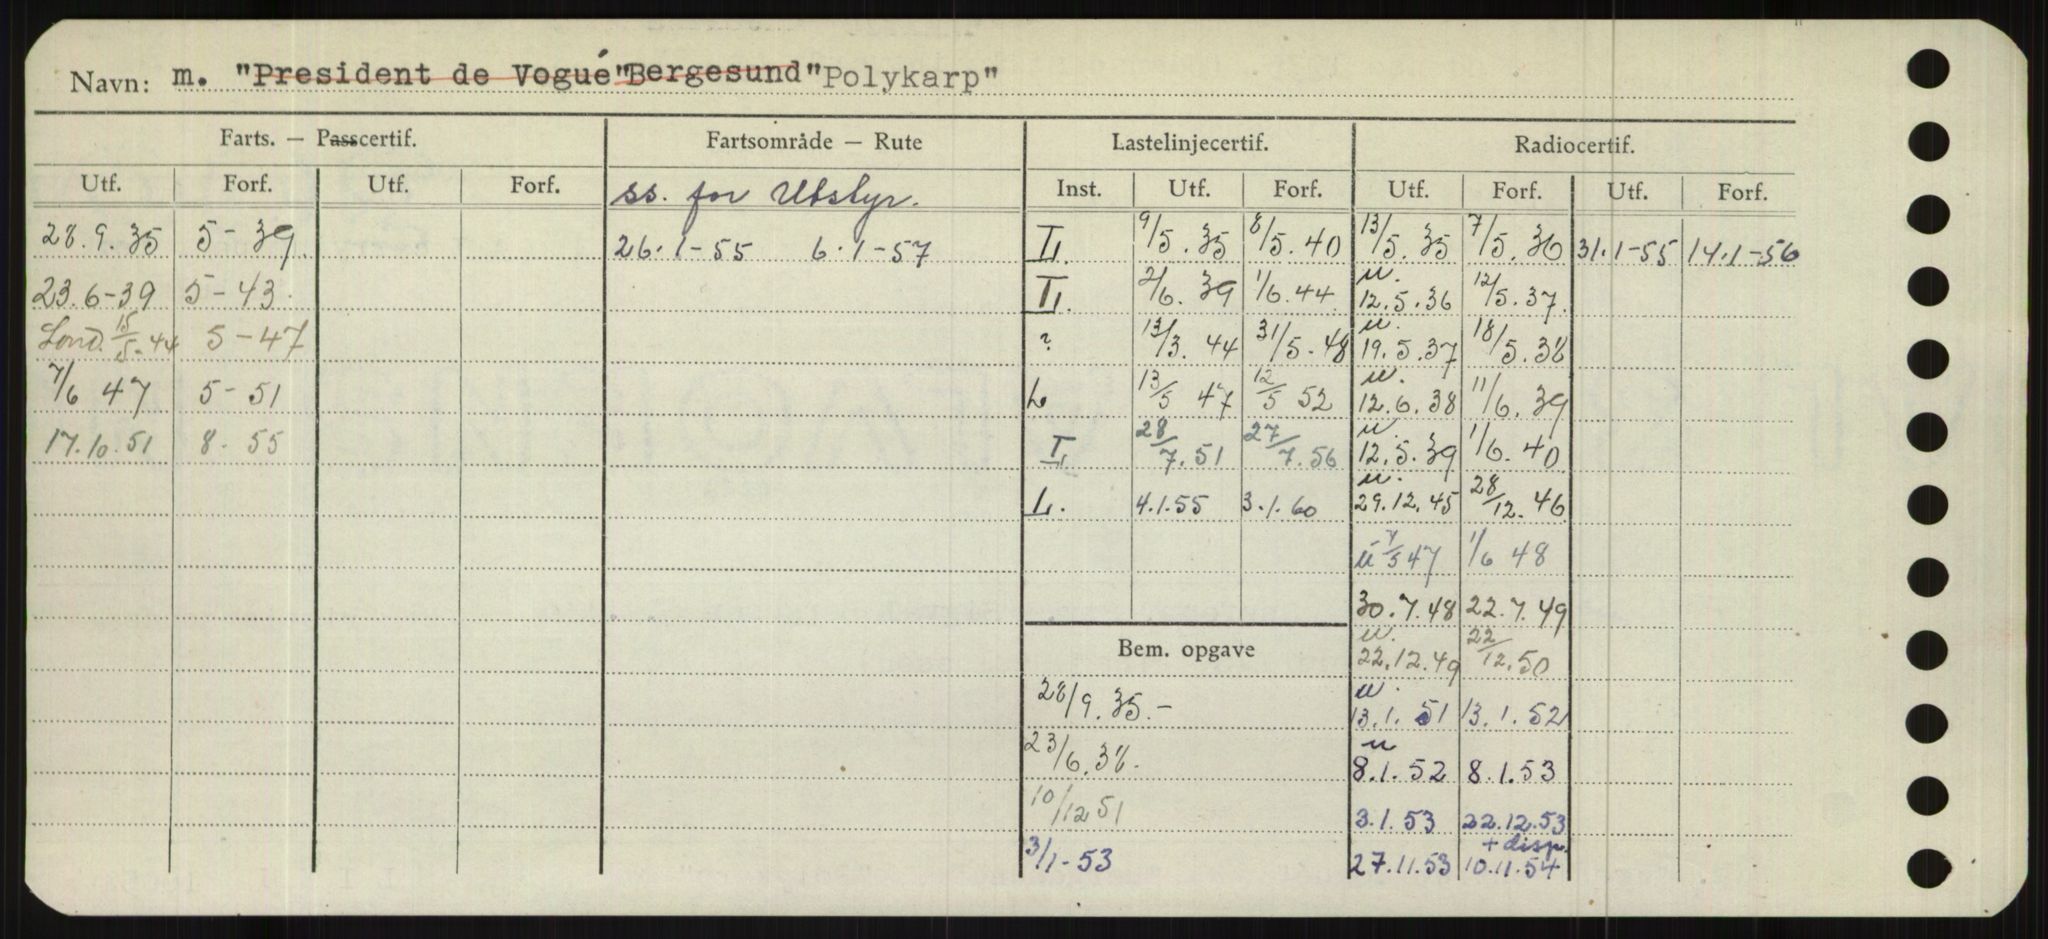 Navn: m. "President de Vogué" "Bergesund" "Polykarp"
Farts. — Passcertif. Fartsområde — Rute Lastelinjecertif. Radiocertif.
Utf. Forf. Utf. Forf. ss. for Utstyr. Inst. Utf. Forf. Utf. Forf. Utf. Forf.
28.9.35 5-39. 26.1-55 6.1-57 L. 9/5.35 8/5.40 13/5.35 7/5.36 31.1-55 14.1-56
23.6-39 5-43. L. 2/6.39 1/6.44 u. 12.5.36 12/5.37.
Lond. 15/5-44 5-47 ? 13/3.44 31/5-48 u. 19.5.37 18/5.38
7/6 47 5-51 L 13/5 47 12/5 52 u. 12.6.38 11/6.39
17.10.51 8-55 L. 28/7.51 27/7.56 u. 12.5.39 1/6.40
L. 4.1.55 3.1.60 u. 29.12.45 28/12.46
u 7/5 47 1/6 48
30.7.48 22.7.49
Bem. opgave u. 22.12.49 22/12.50
28/9.35.- u. 13.1.51 13.1.52
23/6.38. u 8.1.52 8.1.53
10/12 51 3.1.53 22.12.53
+ disp.
3/1-53 27.11.53 10.11.54